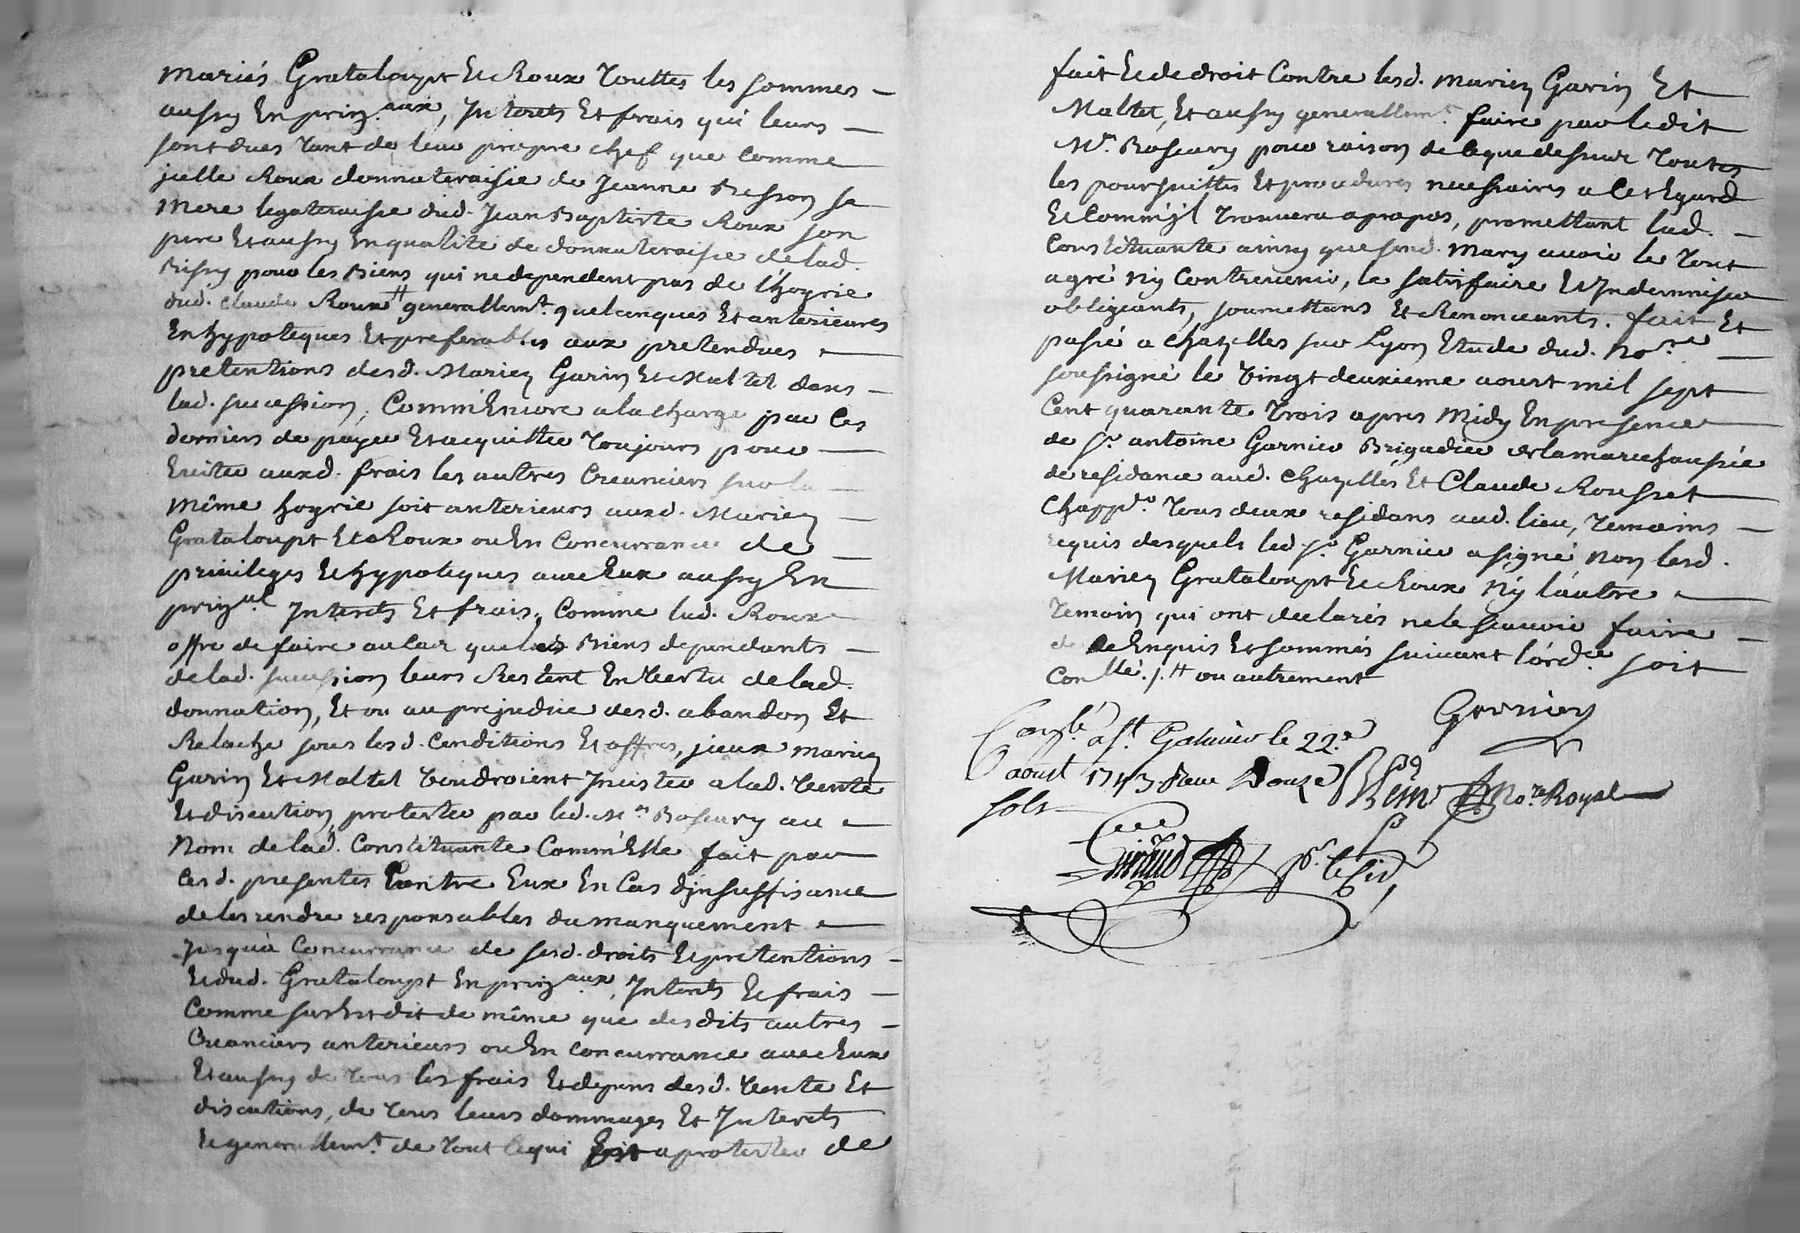 mariés Grataloupt Et Roux Touttes les sommes
aussy En prinz.aux, Interets Et frais qui leurs
sont dues tant de leur propre chef que comme
jcelle Roux donnateraisie de Jeanne Besson sa
mere legateraisie dud. Jean Baptiste Roux son
pere Et aussy En qualité de donnateraisie de lad.
Bissy pour les Biens qui ne dependent pas de l'hoyrie
dud. Claude Roux generallemt. quelconques Et anterieures
En hypoteques Et preferables aux pretendues
pretentions desd. Mariez Garin Et Maltet dans
lad. sucession, Comm'Encore a la charge par les
derniers de payer Et acquitter Toujours pour
Eviter auxd. frais les autres Creanciers sur la
même hoyrie soit anterieurs auxd. Mariez
Grataloupt Et Roux ou En Concurrance de
privileges Et hypoteques avec Eux aussy En
prinz.al Interets Et frais, Comme lad. Roux
offre de faire au cas que les Biens dependants
de lad. sucession leurs Restent En Vertu de lad.
donnation, Et ou au prejudice desd. abandon Et
Relache sous lesd. Conditions Et offres, jceux mariez
Garin Et Maltet Voudroient Insister a lad. Vente
Et discution protester par led. Mre. Boscary au
Nom de lad. Constituante Comm'Elle fait par
Cesd. presentes Contre Eux En Cas d'insuffisance
de les rendre responsables du manquement
Jusqu'a Concurrance de sesd. droits Et pretentions
Et dud. Grataloupt En prinz.aux, Interets Et frais
Comme sus Est dit de même que desdits autres
Creanciers anterieurs ou En concurrance avec Eux
Et aussy de tous les frais Et depens desd. Vente Et
discutions, de tous leurs dommages Et Interets
Et generallemt. de tout Cequi Est a protester de
fait Et de droit Contre lesd. Mariez Garin Et
Maltet, Et aussy generallemt. faire par ledit
Mre. Boscary pour raison de Ceque dessus Toutes
les poursuittes Et procedures necessaires a Cet Egard
Et Comm'jl Trouvera apropos, promettant lad.
Constituante ainsy que sond. Mary avoir le Tout
agré N'y Contrevenir, le satisfaire Et Indemniser
obligeants, soumettans Et Renonceants. fait Et
passé a Chazelles sur Lyon Etude dud. No.re
soussigné le Vingt deuxieme aoust mil sept
Cent quarante Trois apres Midy En presence
de Sr. antoine Garnier Brigadier de la marechaussée
de residance aud. Chazelles Et Claude Rousset
Chapp.r Tous deux residans aud. lieu, Temoins
requis desquels led. Sr. Garnier a signé Non lesd.
Mariez Grataloupt Et Roux N'y l'autre
Temoin qui ont declarés ne le scavoir faire
de Enquis Et sommés suivant l'ord.ce soit
Conllé. ou autrement
Garnier
Conlé a St. Galmier le 22.e
aoust 1743. Reçu Douze
sols
No.re Royal
Giraud